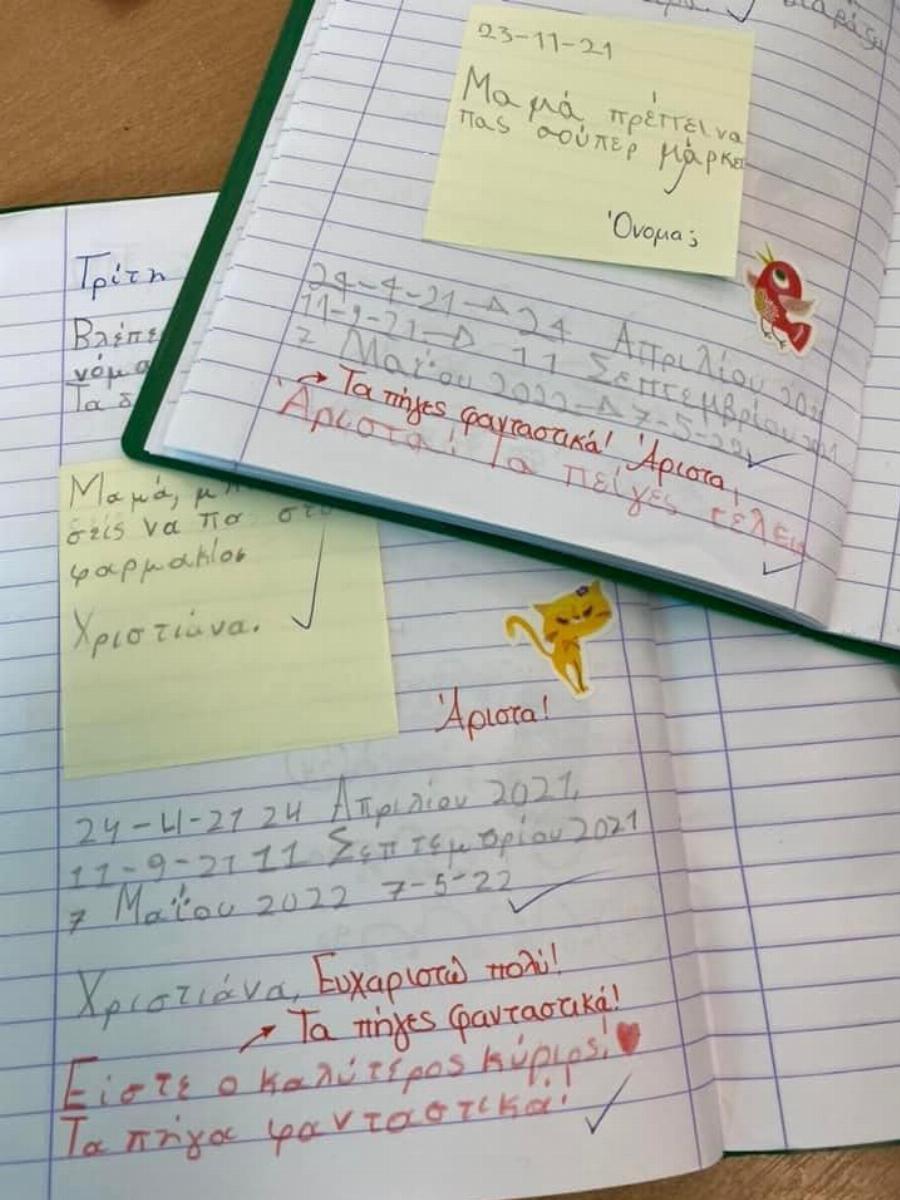 23-11-21
Μαμά πρέπει να
πας σούπερ μάρκε
Όνομα;
24-4-21-Δ 24 Απριλίου 202
11-9-21-Δ 11 Σεπτεμβρίου 2021
7 Μαΐου 2022-Δ 7-5-22
→ Τα πήγες φανταστικά! Άριστα!
Άριστα! Τα πείγες τέλεια
Τρίτη
Βλέπε
νόμα
Τα δ
Μαμά, μ
στις να πα στο
φαρμακίο
Χριστιάνα.
Άριστα!
24-4-21 24 Απριλίου 2021,
11-9-21 11 Σεπτεμβρίου 2021
7 Μαΐου 2022 7-5-22
Χριστιάνα, Ευχαριστώ πολύ!
→ Τα πήγες φανταστικά!
Είστε ο καλύτερος κύριος! ♥
Τα πήγα φανταστικά!